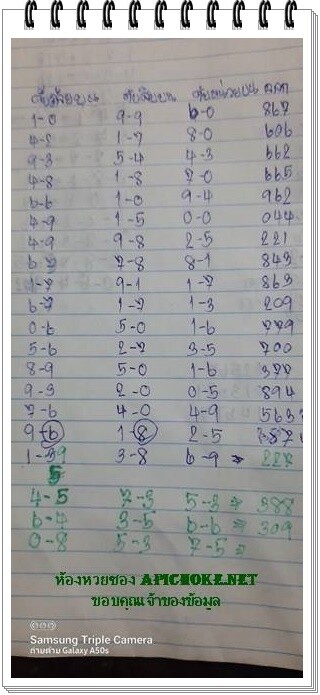 ดับร้อยบน ดับสิบบน ดับหน่วยบน ผลการ
1-0 9-9 6-0 867
4-8 1-7 8-0 606
9-3 5-4 4-3 662
4-8 1-8 7-0 665
6-6 1-0 9-4 962
4-9 1-5 0-0 044
4-9 9-8 2-5 221
6-7 7-8 8-1 843
1-7 9-1 1-7 863
6-7 1-7 1-3 209
0-6 5-0 1-6 779
5-6 2-7 3-5 700
8-9 5-0 1-6 377
9-3 2-0 0-5 894
7-6 4-0 4-9 563
9-6 1-8 2-5 787
1-39 3-8 6-9 => 227
5
4-5 7-3 5-3 => 388
6-4 3-6 6-6 => 309
0-8 5-3 7-5 =>
ห้องหวยของ APICHOKE.NET
ขอบคุณเจ้าของข้อมูล
Samsung Triple Camera
ถ่ายด้วย Galaxy A50s